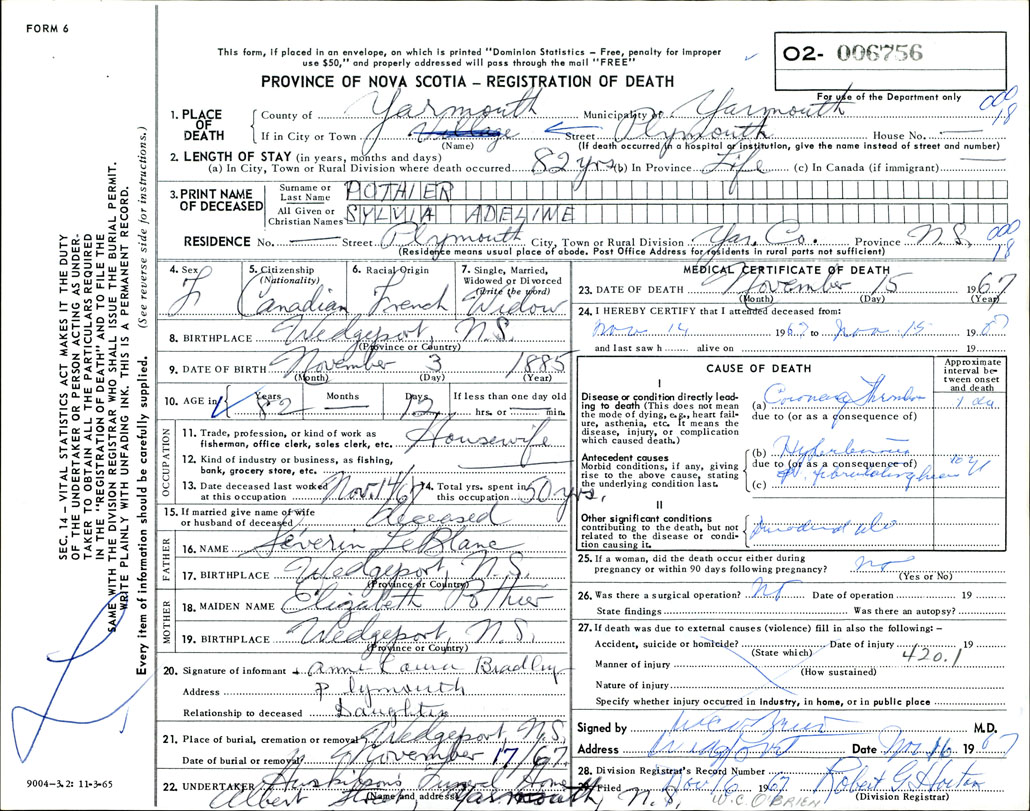 FORM 6
This form, if placed in an envelope, on which is printed "Dominion Statistics – Free, penalty for improper
use $50," and properly addressed will pass through the mail "FREE"
O2- 006756
PROVINCE OF NOVA SCOTIA – REGISTRATION OF DEATH
For use of the Department only
1. PLACE OF DEATH County of Yarmouth Municipality of Yarmouth 000 18
If in City or Town Village Street Plymouth House No. —
(Name) (If death occurred in a hospital or institution, give the name instead of street and number)
2. LENGTH OF STAY (in years, months and days)
(a) In City, Town or Rural Division where death occurred 82 yrs (b) In Province Life (c) In Canada (if immigrant) —
3. PRINT NAME OF DECEASED Surname or Last Name POTHIER
All Given or Christian Names SYLVIA ADELINE
RESIDENCE No. — Street Plymouth City, Town or Rural Division Yar. Co. Province N.S. 000 18
(Residence means usual place of abode. Post Office Address for residents in rural parts not sufficient)
4. Sex F
5. Citizenship (Nationality) Canadian
6. Racial Origin French
7. Single, Married, Widowed or Divorced (Write the word) Widow
8. BIRTHPLACE Wedgeport, N.S.
(Province or Country)
9. DATE OF BIRTH November 3 1885
(Month) (Day) (Year)
10. AGE in Years 82 Months — Days 12 If less than one day old hrs. or min.
OCCUPATION
11. Trade, profession, or kind of work as fisherman, office clerk, sales clerk, etc. Housewife
12. Kind of industry or business, as fishing, bank, grocery store, etc.
13. Date deceased last worked at this occupation Nov. 14/67 14. Total yrs. spent in this occupation 50 yrs.
15. If married give name of wife or husband of deceased deceased
FATHER
16. NAME Séverin LeBlanc
17. BIRTHPLACE Wedgeport, N.S.
(Province or Country)
MOTHER
18. MAIDEN NAME Elizabeth Pothier
19. BIRTHPLACE Wedgeport, N.S.
(Province or Country)
20. Signature of informant Anne Laura Bradley
Address Plymouth
Relationship to deceased Daughter
21. Place of burial, cremation or removal Wedgeport, N.S.
Date of burial or removal November 17/67
22. UNDERTAKER Huskilson's Funeral Home
Albert Yarmouth, N.S.
(Name and address)
MEDICAL CERTIFICATE OF DEATH
23. DATE OF DEATH November 15 1967
(Month) (Day) (Year)
24. I HEREBY CERTIFY that I attended deceased from:
Nov 14 1967 to Nov 15 1967
and last saw h alive on 19
CAUSE OF DEATH
Approximate interval between onset and death
I
Disease or condition directly leading to death (This does not mean the mode of dying, e.g., heart failure, asthenia, etc. It means the disease, injury, or complication which caused death.)
(a) Coronary 1 da
due to (or as a consequence of)
Antecedent causes
Morbid conditions, if any, giving rise to the above cause, stating the underlying condition last.
(b)
due to (or as a consequence of) 10 y
(c)
II
Other significant conditions contributing to the death, but not related to the disease or condition causing it.
25. If a woman, did the death occur either during pregnancy or within 90 days following pregnancy? no
(Yes or No)
26. Was there a surgical operation? no Date of operation 19
State findings Was there an autopsy?
27. If death was due to external causes (violence) fill in also the following: –
Accident, suicide or homicide? Date of injury 19
(State which) 420.1
Manner of injury
(How sustained)
Nature of injury
Specify whether injury occurred in Industry, in home, or in public place
Signed by M.D.
Address Wedgeport Date Nov 16 1967
28. Division Registrar's Record Number
Filed Nov 16 1967 Robert G. Horton
W.C. O'BRIEN (Division Registrar)
SEC. 14 – VITAL STATISTICS ACT MAKES IT THE DUTY
OF THE UNDERTAKER OR PERSON ACTING AS UNDER-
TAKER TO OBTAIN ALL THE PARTICULARS REQUIRED
IN THE "REGISTRATION OF DEATH" AND TO FILE THE
SAME WITH THE DIVISION REGISTRAR WHO SHALL ISSUE THE BURIAL PERMIT.
WRITE PLAINLY WITH UNFADING INK. THIS IS A PERMANENT RECORD.
Every item of information should be carefully supplied. (See reverse side for instructions.)
9004-3.2: 11-3-65